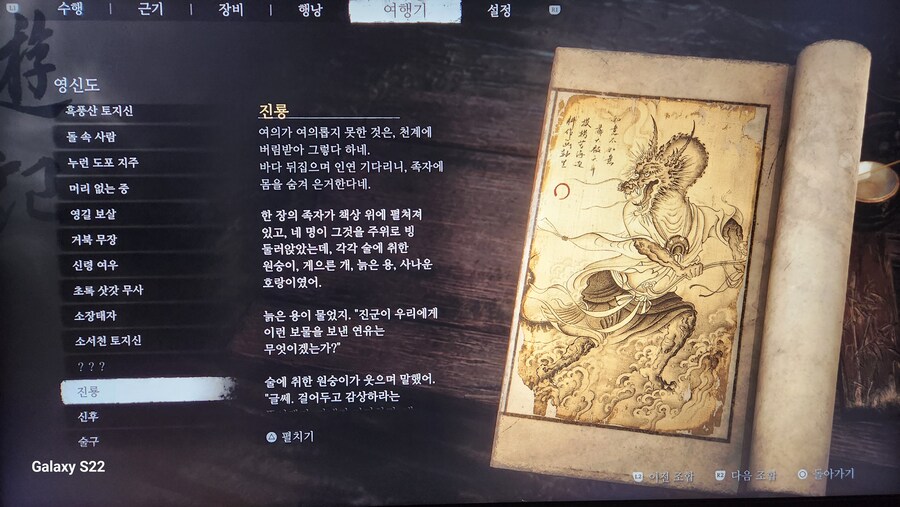 수행
근기
장비
행낭
여행기
설정
遊
記
영신도
흑풍산 토지신
돌 속 사람
누런 도포 지주
머리 없는 중
영길 보살
거북 무장
신령 여우
초록 삿갓 무사
소장태자
소서천 토지신
? ? ?
진룡
신후
술구
진룡
여의가 여의롭지 못한 것은, 천계에
버림받아 그렇다 하네.
바다 뒤집으며 인연 기다리니, 족자에
몸을 숨겨 은거한다네.
한 장의 족자가 책상 위에 펼쳐져
있고, 네 명이 그것을 주위로 빙
둘러앉았는데, 각각 술에 취한
원숭이, 게으른 개, 늙은 용, 사나운
호랑이였어.
늙은 용이 물었지. "진군이 우리에게
이런 보물을 보낸 연유는
무엇이겠는가?"
술에 취한 원숭이가 웃으며 말했어.
"글쎄. 걸어두고 감상하라는
펼치기
이전 조합
다음 조합
돌아가기
Galaxy S22